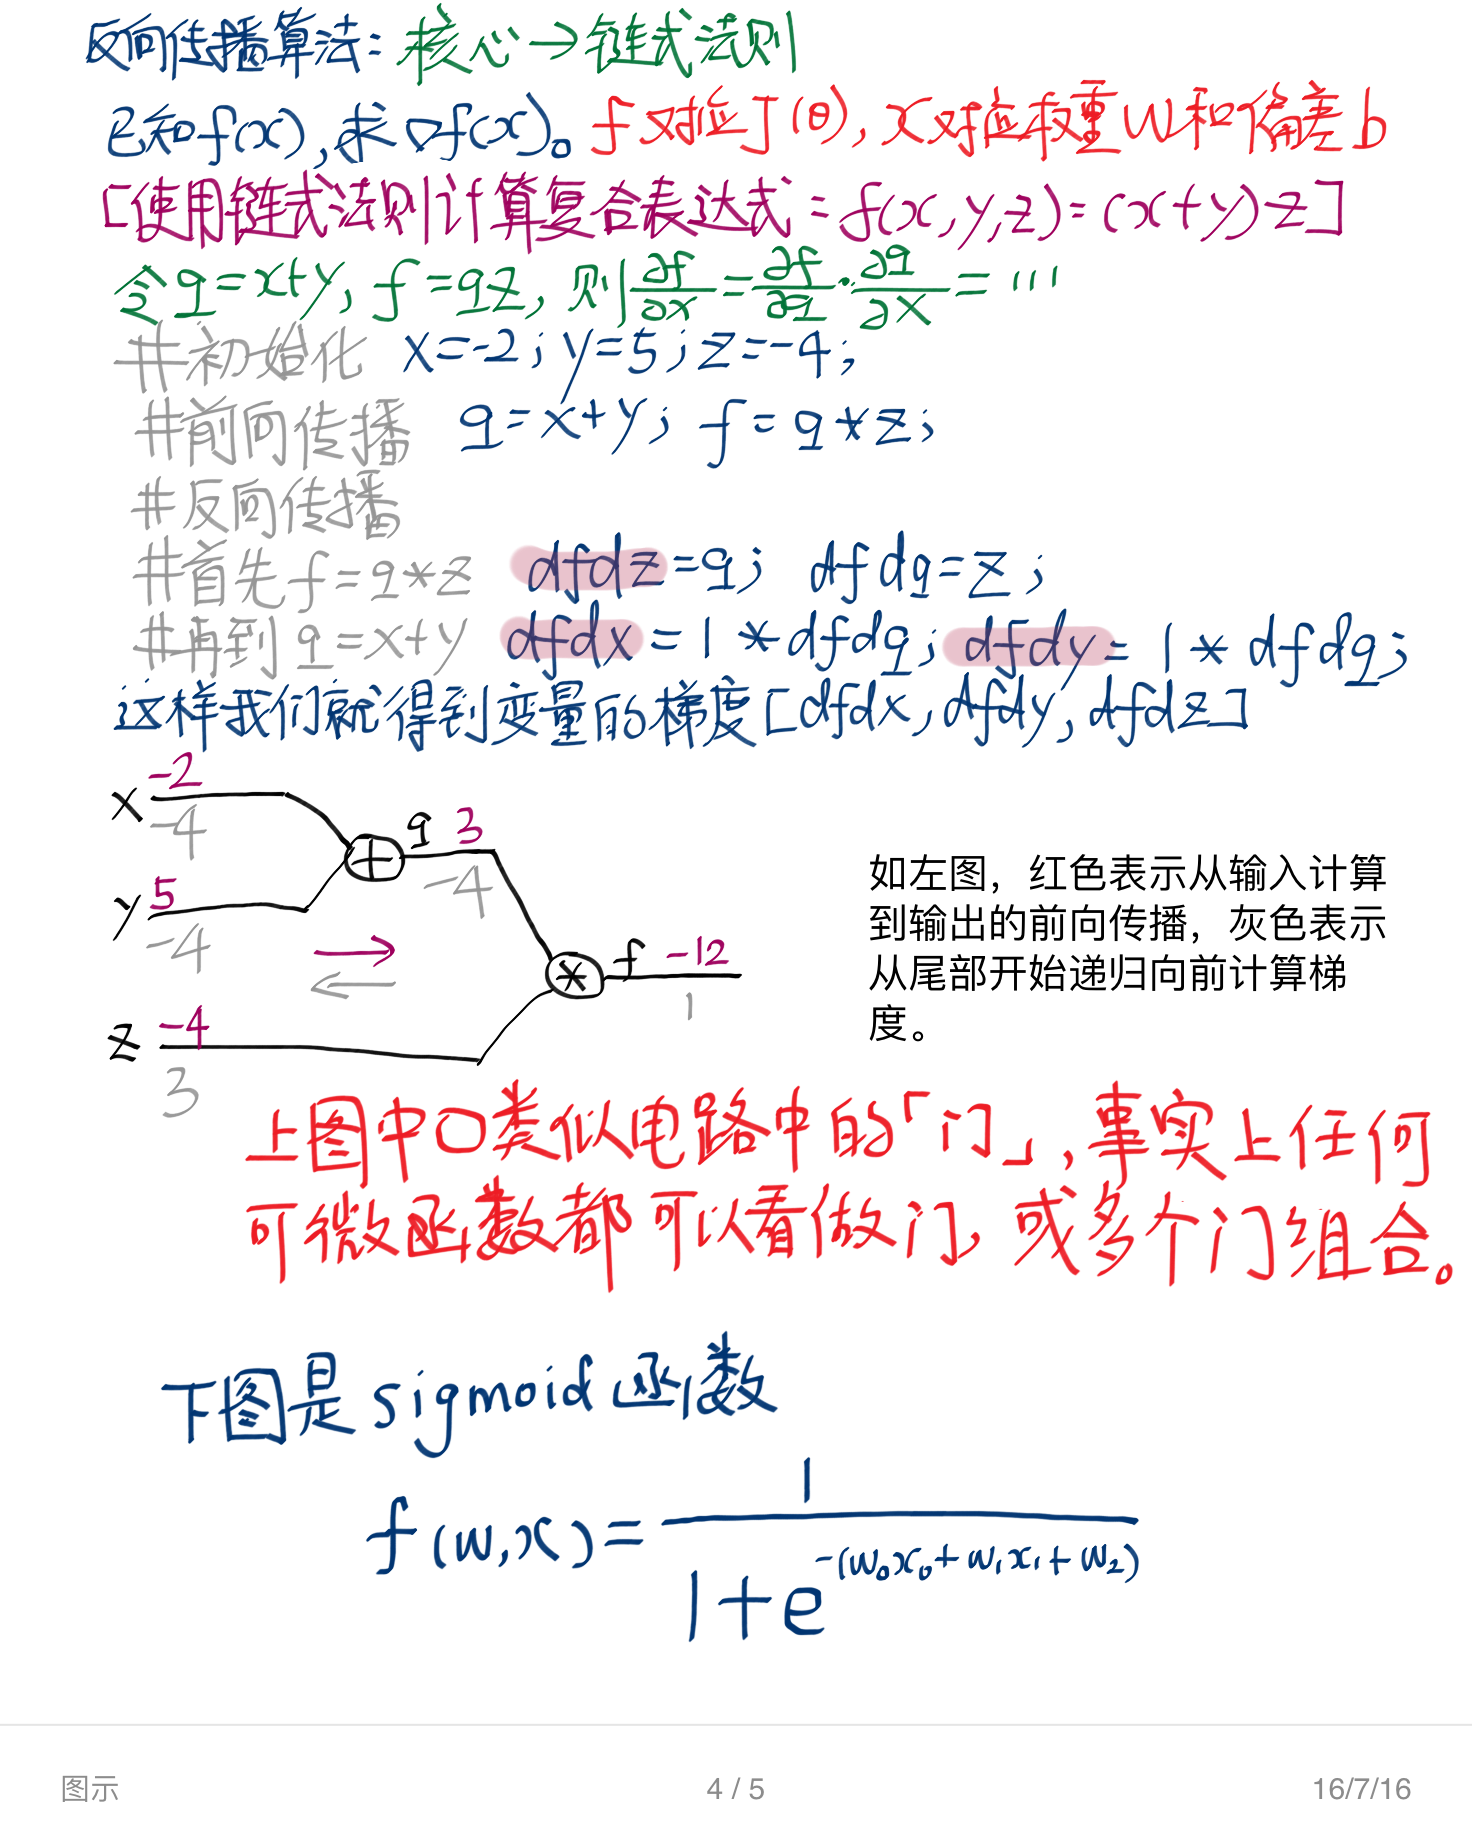 反向传播算法：核心→链式法则
已知f(x)，求▽f(x)。f对应J(θ)，x对应权重W和偏差b
[使用链式法则计算复合表达式：f(x,y,z)=(x+y)·z]
令q=x+y，f=qz，则∂f/∂x=∂f/∂q·∂q/∂x=…
#初始化 x=-2；y=5；z=-4；
#前向传播 q=x+y；f=q*z；
#反向传播
#首先f=q*z dfdz=q；dfdq=z；
#再到q=x+y dfdx=1*dfdq；dfdy=1*dfdq；
这样我们就得到变量的梯度[dfdx，dfdy，dfdz]
x -2
-4
q 3
-4
+
y 5
-4
f -12
1
*
z -4
3
如左图，红色表示从输入计算
到输出的前向传播，灰色表示
从尾部开始递归向前计算梯
度。
上图中○类似电路中的「门」，事实上任何
可微函数都可以看做门，或多个门组合。
下图是sigmoid函数
f(w,x)=1/(1+e^-(w₀x₀+w₁x₁+w₂))
图示 4 / 5 16/7/16